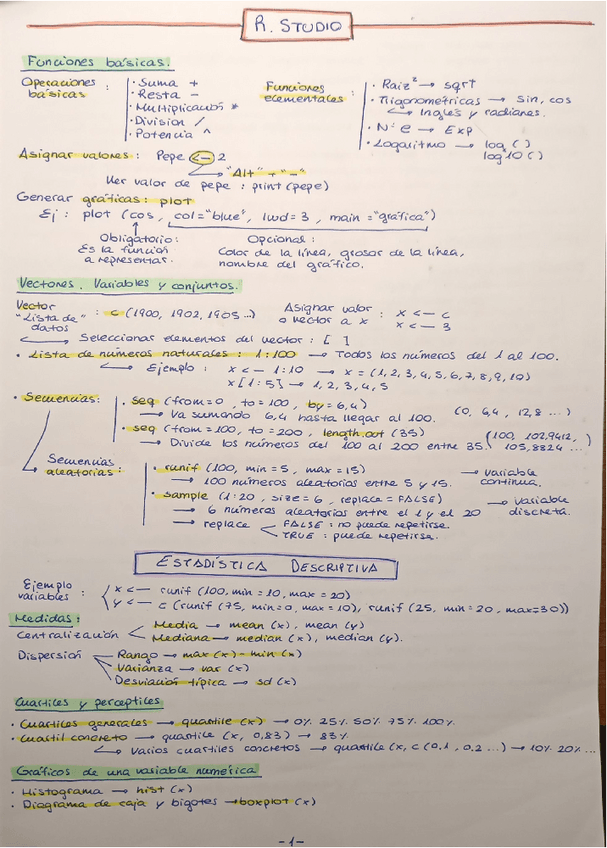 R. STUDIO
Funciones básicas.
Operaciones básicas :
· Suma +
· Resta -
· Multiplicación *
· Division /
· Potencia ^
Funciones elementales :
· Raiz² → sqrt
· Trigonométricas → sin, cos
↳ Ingles y radianes.
· Nº e → Exp
· Logaritmo → log ( )
log10 ( )
Asignar valores : Pepe <- 2
"Alt" + "-"
Ver valor de pepe : print (pepe)
Generar gráficas : plot
Ej : plot (cos, col="blue", lwd=3, main="gráfica")
Obligatorio :
Es la función
a representar.
Opcional :
Color de la línea, grosor de la línea,
nombre del gráfico.
Vectores. Variables y conjuntos.
Vector
"Lista de datos" : c (1900, 1902, 1905...)
Asignar valor : x <- c
o vector a x x <- 3
Seleccionar elementos del vector : [ ]
· Lista de números naturales : 1:100 → Todos los números del 1 al 100.
Ejemplo : x <- 1:10 → x = (1,2,3,4,5,6,7,8,9,10)
x [1:5] → 1,2,3,4,5
· Secuencias :
· seq (from=0, to=100, by=6,4)
→ Va sumando 6,4 hasta llegar al 100. (0, 6,4, 12,8 ...)
· seq (from=100, to=200, length.out (35)
→ Divide los números del 100 al 200 entre 35. (100, 102,9412, 105,8824 ...)
Secuencias aleatorias :
· runif (100, min=5, max=15) → variable continua.
→ 100 números aleatorios entre 5 y 15.
· sample (1:20, size=6, replace=FALSE) → variable discreta.
→ 6 números aleatorios entre el 1 y el 20
→ replace < FALSE : no puede repetirse.
TRUE : puede repetirse.
ESTADÍSTICA DESCRIPTIVA
Ejemplo variables :
x <- runif (100, min=10, max=20)
y <- c (runif (75, min=0, max=10), runif (25, min=20, max=30))
Medidas :
Centralización
Media → mean (x), mean (y)
Mediana → median (x), median (y).
Dispersión
Rango → max (x) - min (x)
Varianza → var (x)
Desviación típica → sd (x)
Cuartiles y perceptiles
· Cuartiles generales → quantile (x) → 0% 25% 50% 75% 100%
· Cuartil concreto → quantile (x, 0,83) → 83%
↳ Varios cuartiles concretos → quantile (x, c (0,1, 0,2 ...) → 10% 20% ...
Gráficos de una variable numérica
· Histograma → hist (x)
· Diagrama de caja y bigotes → boxplot (x)
-1-